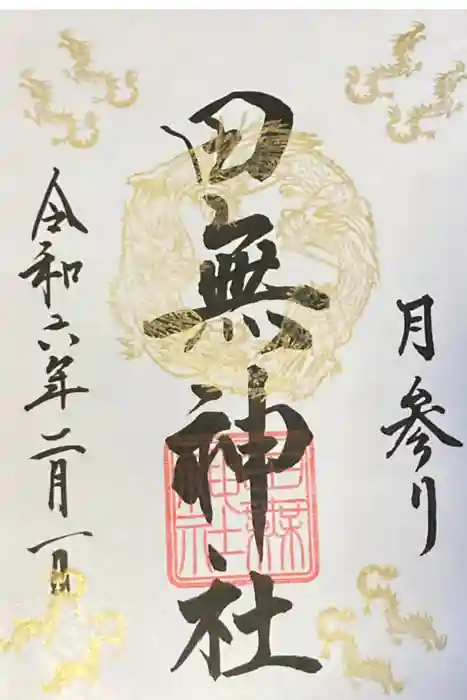 月参り
田無神社
令和六年二月一日
田無神社